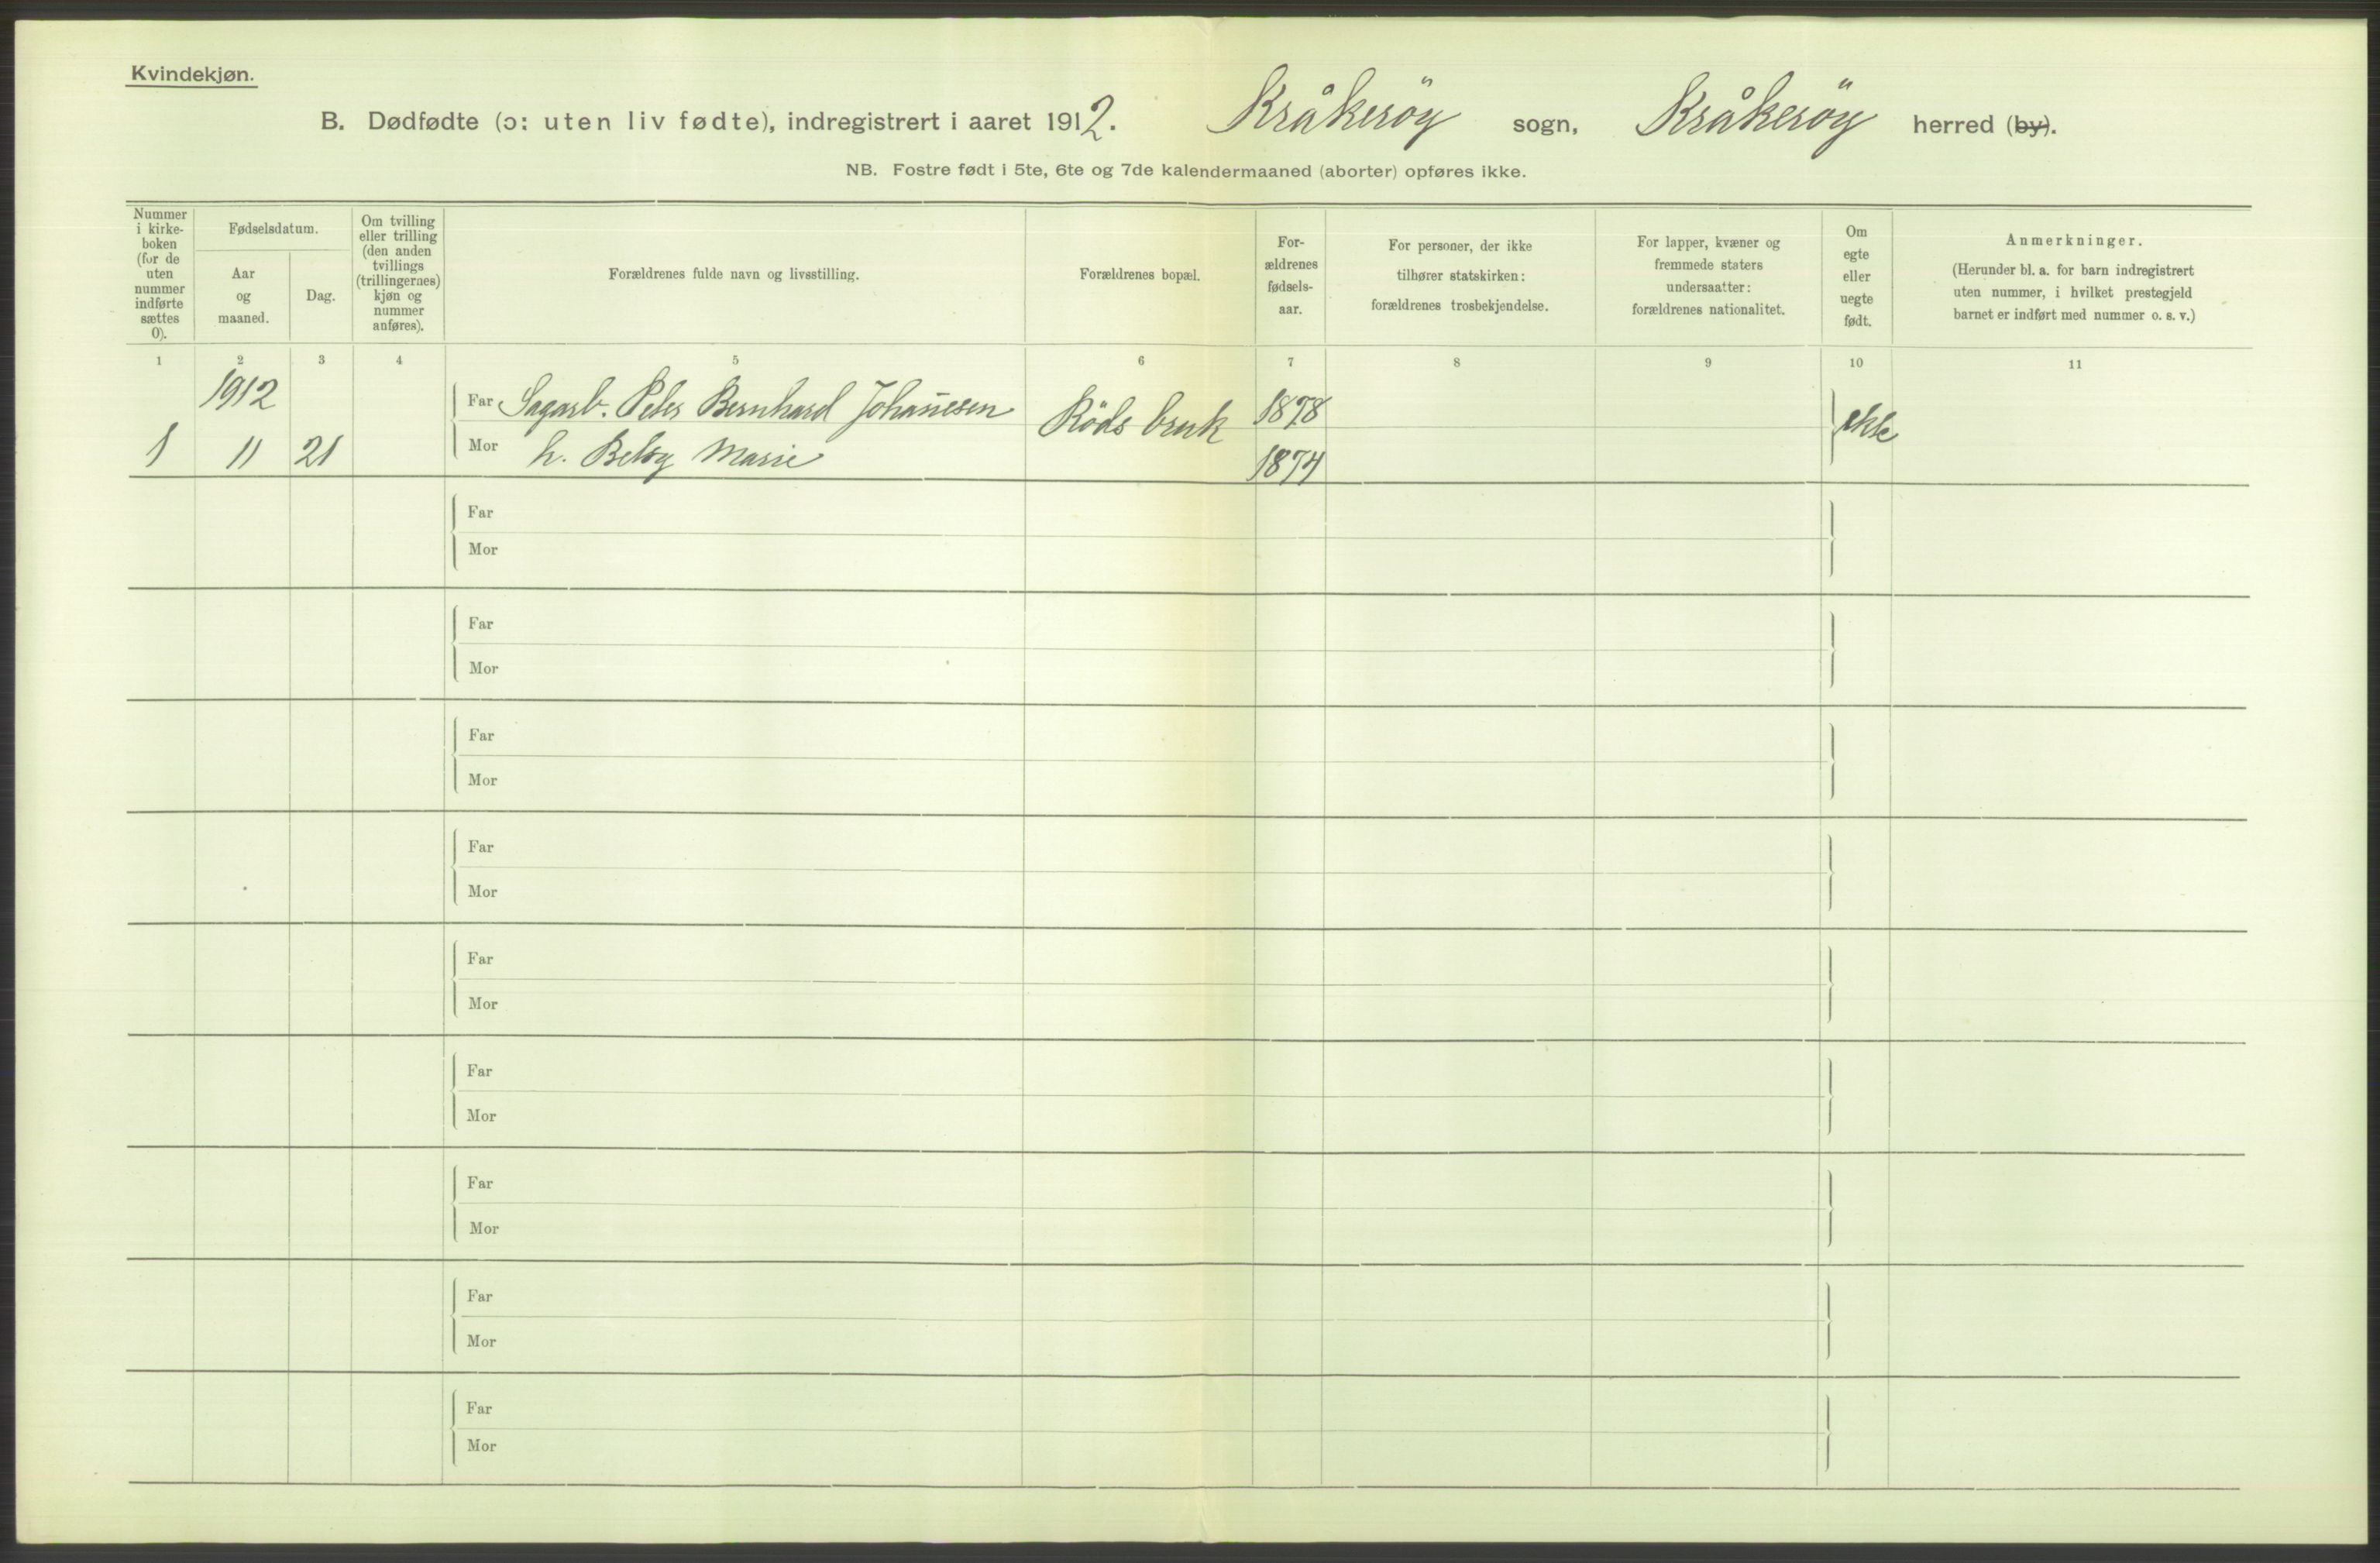 Kvindekjøn.
B. Dødfødte (ɔ: uten liv fødte), indregistrert i aaret 1912. Kråkeröy sogn, Kråkeröy herred (by).
NB. Fostre født i 5te, 6te og 7de kalendermaaned (aborter) opføres ikke.
Nummer
i kirke-
boken
(for de
uten
nummer
indførte
sættes
0).
Fødselsdatum.
Aar
og
maaned.
Dag.
Om tvilling
eller trilling
(den anden
tvillings
(trillingernes)
kjøn og
nummer
anføres).
Forældrenes fulde navn og livsstilling.
Forældrenes bopæl.
For-
ældrenes
fødsels-
aar.
For personer, der ikke
tilhører statskirken:
forældrenes trosbekjendelse.
For lapper, kvæner og
fremmede staters
undersaatter:
forældrenes nationalitet.
Om
egte
eller
uegte
født.
Anmerkninger.
(Herunder bl. a. for barn indregistrert
uten nummer, i hvilket prestegjeld
barnet er indført med nummer o. s. v.)
1 2 3 4 5 6 7 8 9 10 11
1912 Far Sagarb. Peter Bernhard Johannesen Röds bruk 1878 ekte
1 11 21 Mor h. Betsy Marie 1874
Far
Mor
Far
Mor
Far
Mor
Far
Mor
Far
Mor
Far
Mor
Far
Mor
Far
Mor
Far
Mor